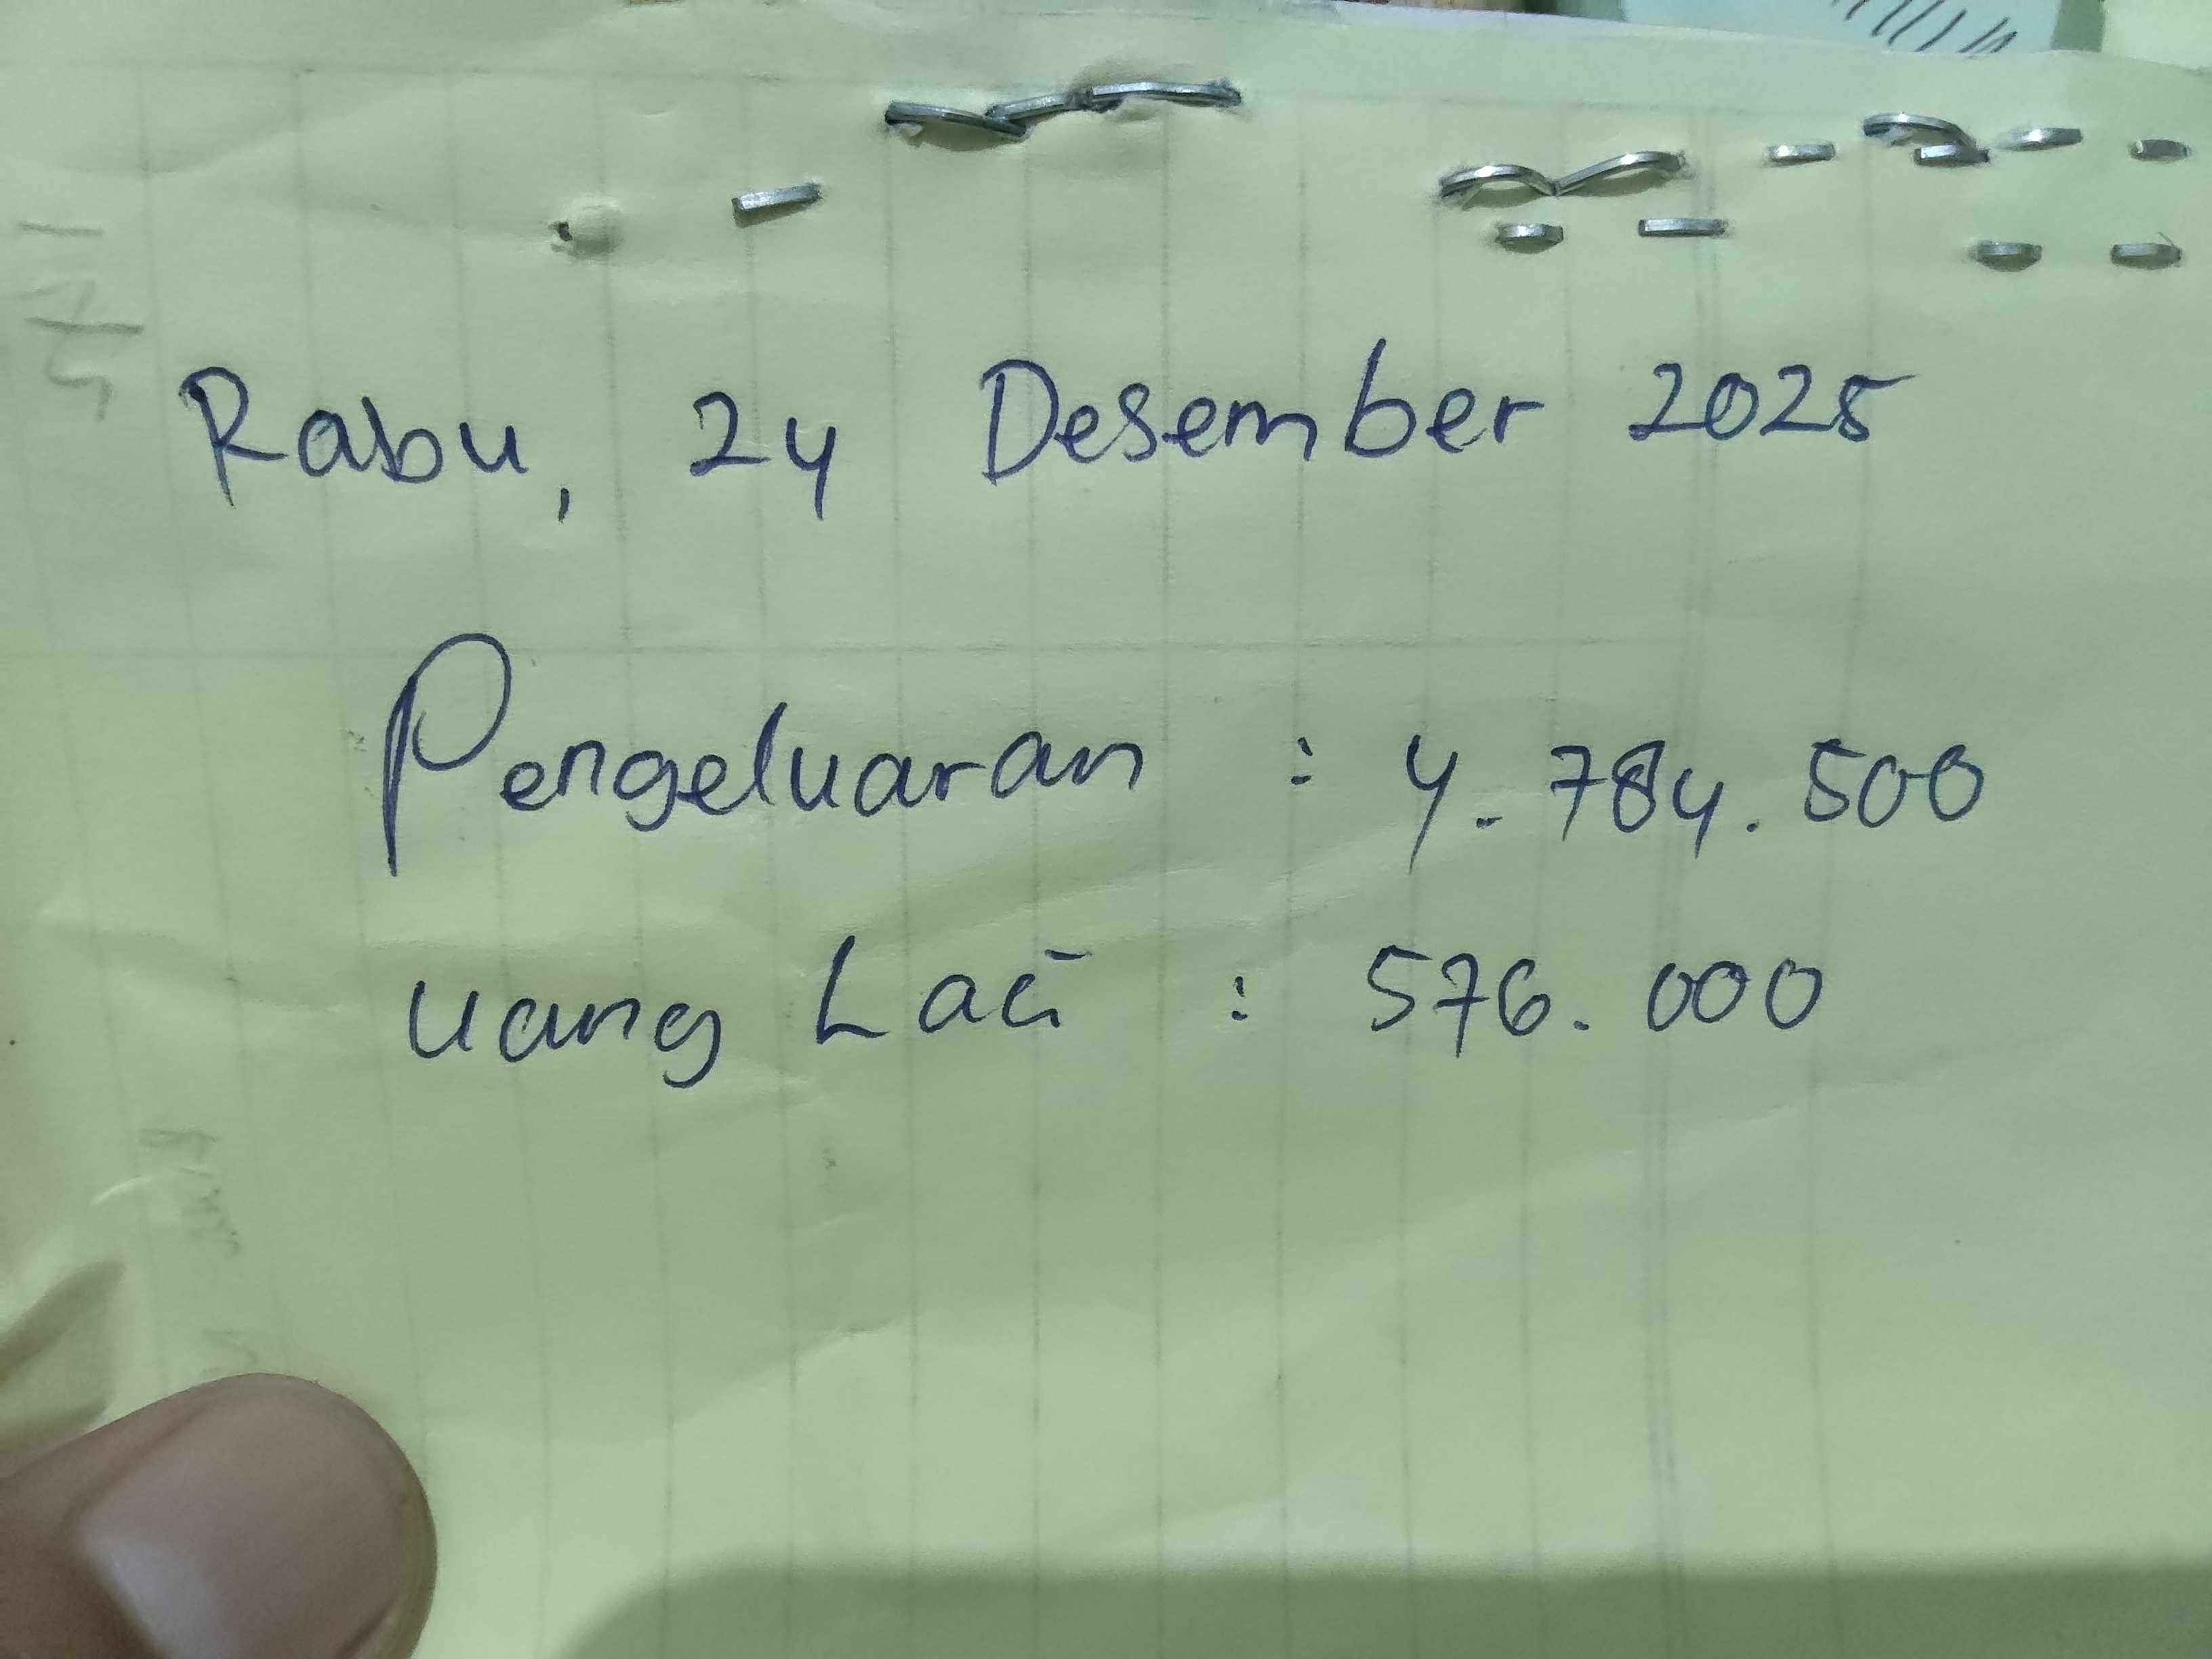 Rabu, 24 Desember 2025
Pengeluaran : 4.784.500
Uang Laci : 576.000